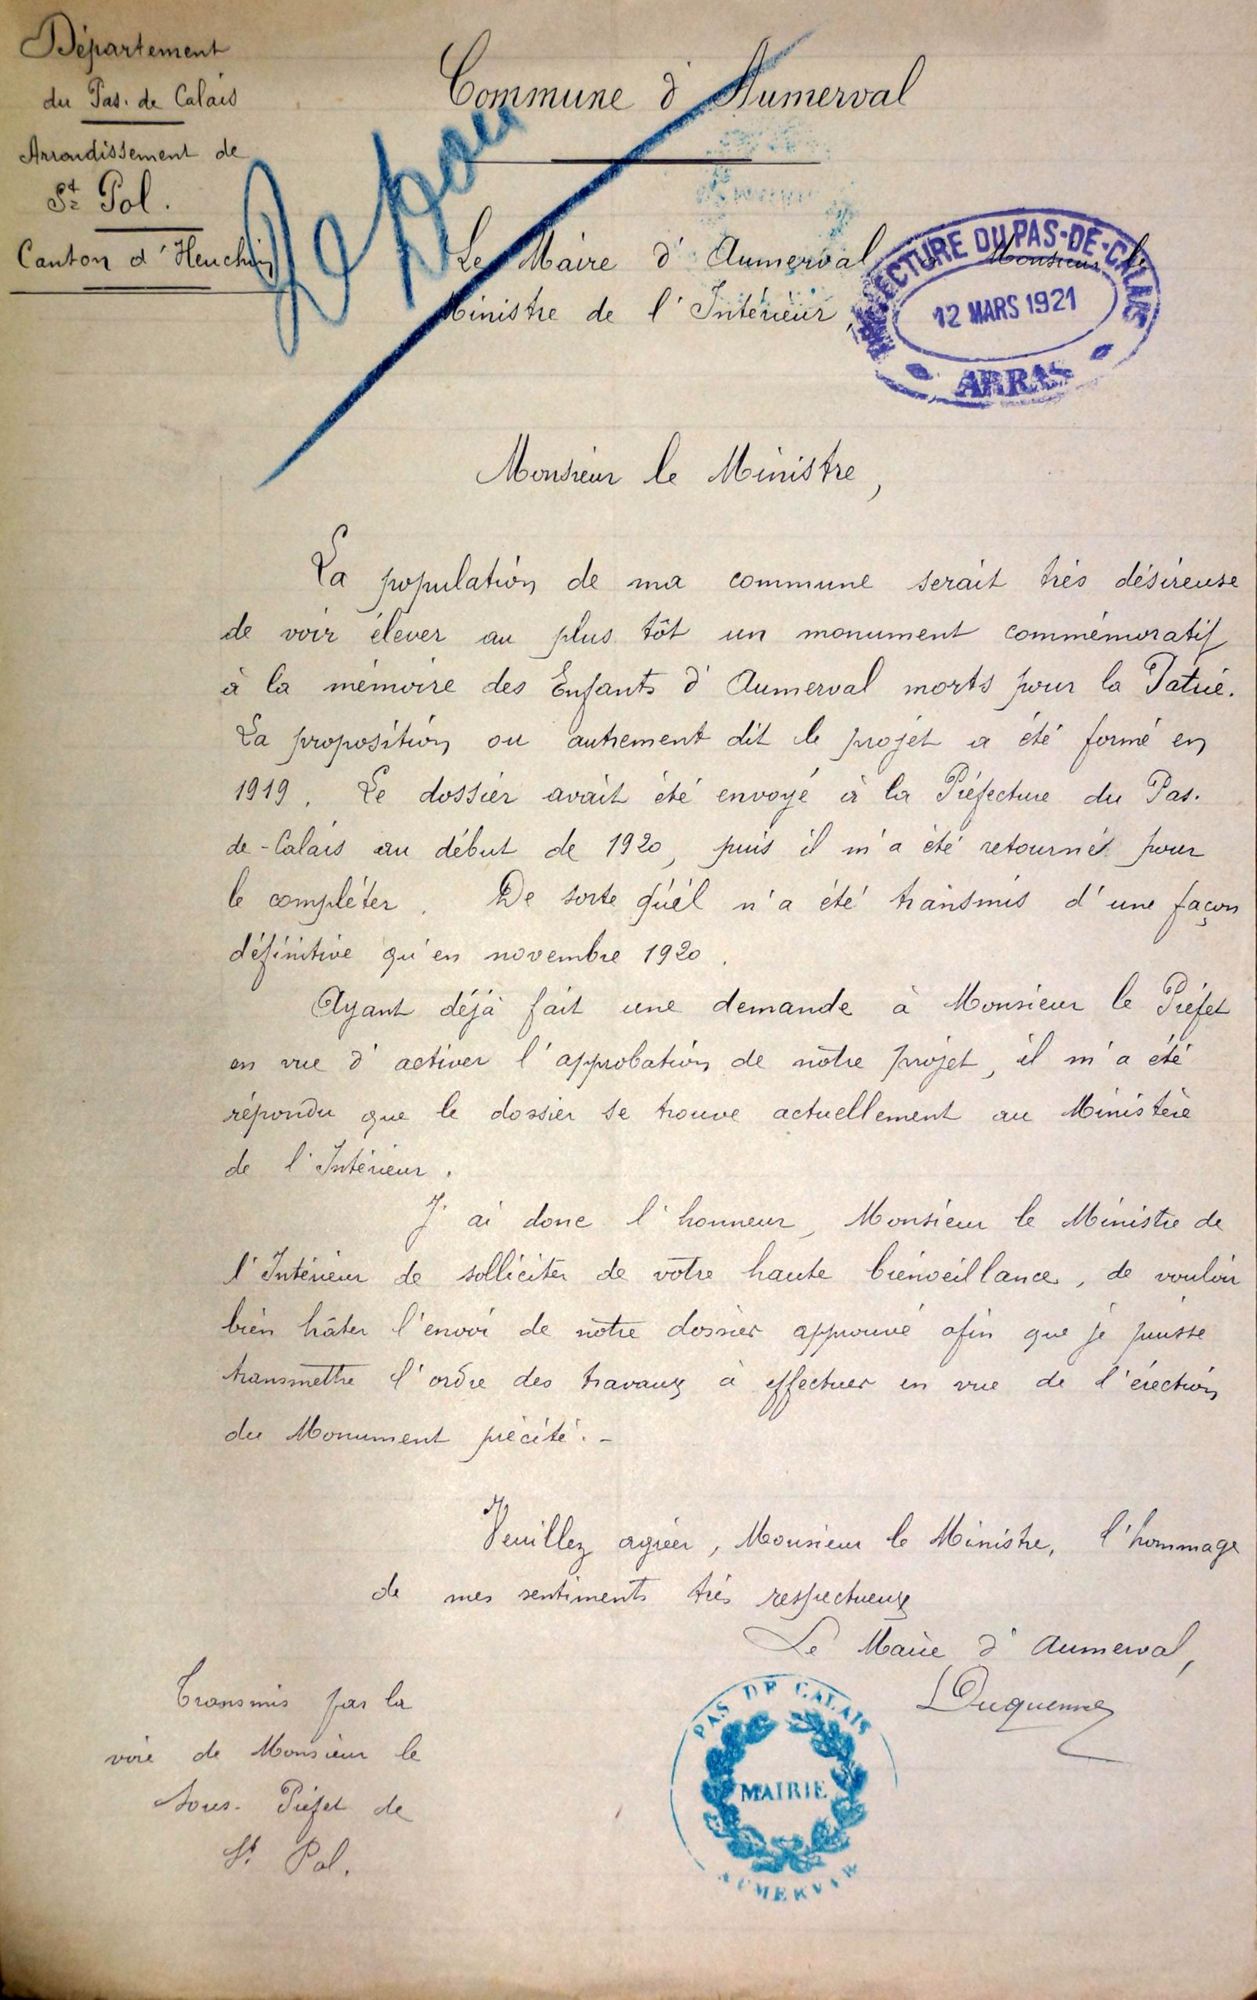 Département
du Pas. de Calais
Arrondissement de
St Pol.
Canton d'Heuchin
Commune d'Aumerval
Le Maire d'Aumerval à Monsieur le
Ministre de l'Intérieur,
PRÉFECTURE DU PAS-DE-CALAIS
12 MARS 1921
ARRAS
Monsieur le Ministre,
La population de ma commune serait très désireuse
de voir élever au plus tôt un monument commémoratif
à la mémoire des Enfants d'Aumerval morts pour la Patrie.
La proposition ou autrement dit le projet a été formé en
1919. Le dossier avait été envoyé à la Préfecture du Pas-
de-Calais au début de 1920, puis il m'a été retourné pour
le compléter. De sorte qu'il n'a été transmis d'une façon
définitive qu'en novembre 1920.
Ayant déjà fait une demande à Monsieur le Préfet
en vue d'activer l'approbation de notre projet, il m'a été
répondu que le dossier se trouve actuellement au Ministère
de l'Intérieur.
J'ai donc l'honneur, Monsieur le Ministre de
l'Intérieur de solliciter de votre haute bienveillance, de vouloir
bien hâter l'envoi de notre dossier approuvé afin que je puisse
transmettre l'ordre des travaux à effectuer en vue de l'érection
du Monument précité.-
Veuillez agréer, Monsieur le Ministre, l'hommage
de mes sentiments très respectueux
Le Maire d'Aumerval,
LDuquenne
Transmis par la
voie de Monsieur le
Sous-Préfet de
St Pol.
PAS DE CALAIS
MAIRIE
AUMERVAL